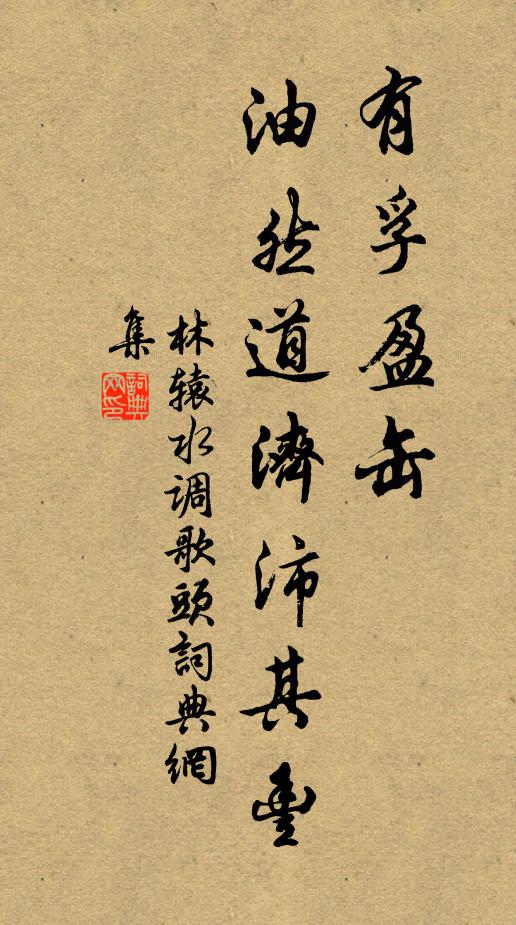 有孚盈缶
油然道濟沛其豊
林辕水调歌頭詞典網
集
詞典
网印